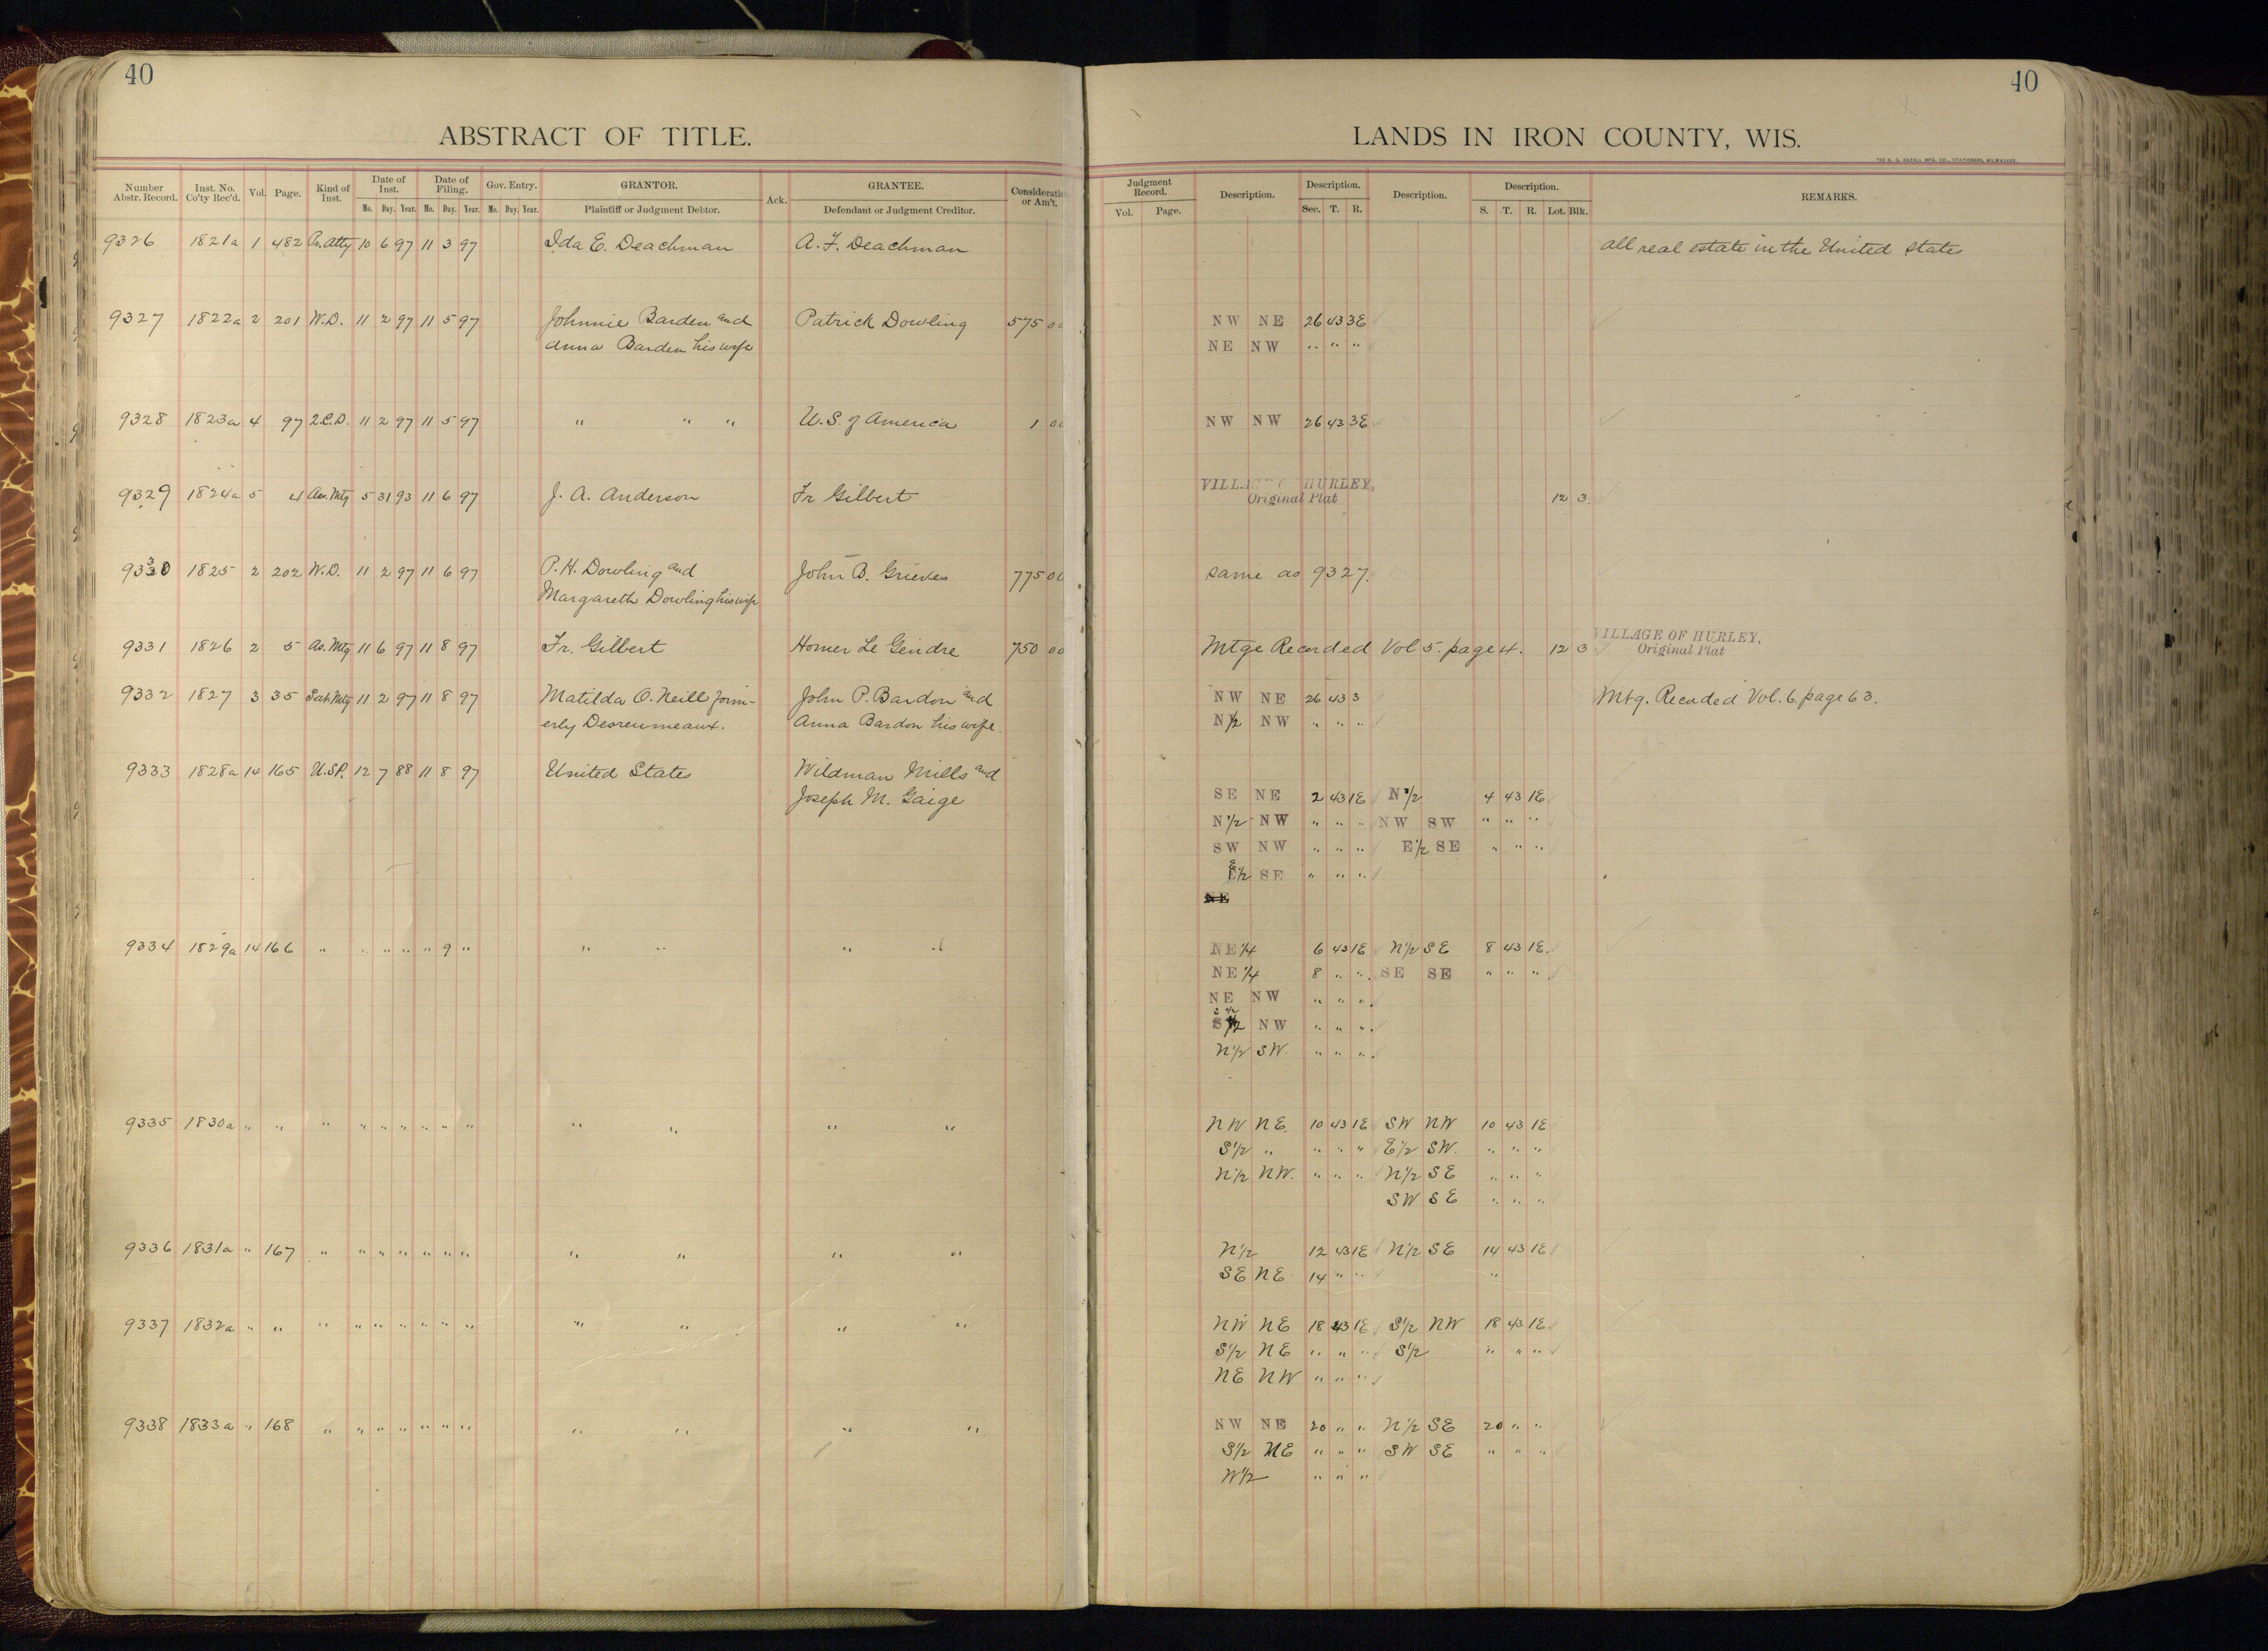 40
40
ABSTRACT OF TITLE.
LANDS IN IRON COUNTY, WIS.
Number Abstr. Record. Inst. No. Co'ty Rec'd. Vol. Page. Kind of Inst. Date of Inst. Mo. Day. Year. Date of Filing. Mo. Day. Year. Gov. Entry. Mo. Day. Year. GRANTOR. Plaintiff or Judgment Debtor. Ack. GRANTEE. Defendant or Judgment Creditor. Consideration or Am't.
Judgment Record. Vol. Page. Description. Description. Sec. T. R. Description. Description. S. T. R. Lot. Blk. REMARKS.
9326 1821a 1 482 Po. Atty 10 6 97 11 3 97 Ida E. Deachman A. F. Deachman all real estate in the United States
9327 1822a 2 201 W.D. 11 2 97 11 5 97 Johnnie Barden and Patrick Dowling 575 00 NW NE 26 43 3E
Anna Barden his wife NE NW " " "
9328 1823a 4 97 2.C.D. 11 2 97 11 5 97 " " " U.S. of America 1 00 NW NW 26 43 3E
9329 1824a 5 4 Ass. Mtg 5 31 93 11 6 97 J. A. Anderson Fr Gilbert VILLAGE OF HURLEY, Original Plat 12 3
9330 1825 2 202 W.D. 11 2 97 11 6 97 P. H. Dowling and John B. Grieves 775 00 same as 9327.
Margareth Dowling his wife
9331 1826 2 5 As. Mtg 11 6 97 11 8 97 Fr. Gilbert Homer Le Gendre 750 00 Mtge Recorded Vol 5. page 4. 12 3 VILLAGE OF HURLEY, Original Plat
9332 1827 3 35 Sat. Mtg 11 2 97 11 8 97 Matilda O. Neill form- John P. Bardon and NW NE 26 43 3 Mtg. Recorded Vol. 6. page 63.
erly Desreumeaux. Anna Bardon his wife. N 1/2 NW " " "
9333 1828a 14 165 U.S.P. 12 7 88 11 8 97 United States Wildman Mills and
Joseph M. Gaige SE NE 2 43 1E N 1/2 4 43 1E
N 1/2 NW " " " NW SW " " "
SW NW " " " E 1/2 SE " " "
E 1/2 SE " " "
NE
9334 1829a 14 166 " " " " " 9 " " " " " NE 1/4 6 43 1E N 1/2 SE 8 43 1E.
NE 1/4 8 " " SE SE " " "
NE NW " " "
S 1/2 NW " " "
N 1/2 SW. " " "
9335 1830a " " " " " " " " " " " " " NW NE 10 43 1E SW NW 10 43 1E
S 1/2 " " " " E 1/2 SW. " " "
N 1/2 NW. " " " N 1/2 SE " " "
SW SE " " "
9336 1831a " 167 " " " " " " " " " " " N 1/2 12 43 1E N 1/2 SE 14 43 1E
SE NE 14 " " "
9337 1832a " " " " " " " " " " " " " NW NE 18 43 1E S 1/2 NW 18 43 1E
S 1/2 NE " " " S 1/2 " " "
NE NW " " "
9338 1833a " 168 " " " " " " " " " " " NW NE 20 " " N 1/2 SE 20 " "
S 1/2 NE " " " SW SE " " "
W 1/2 " " "